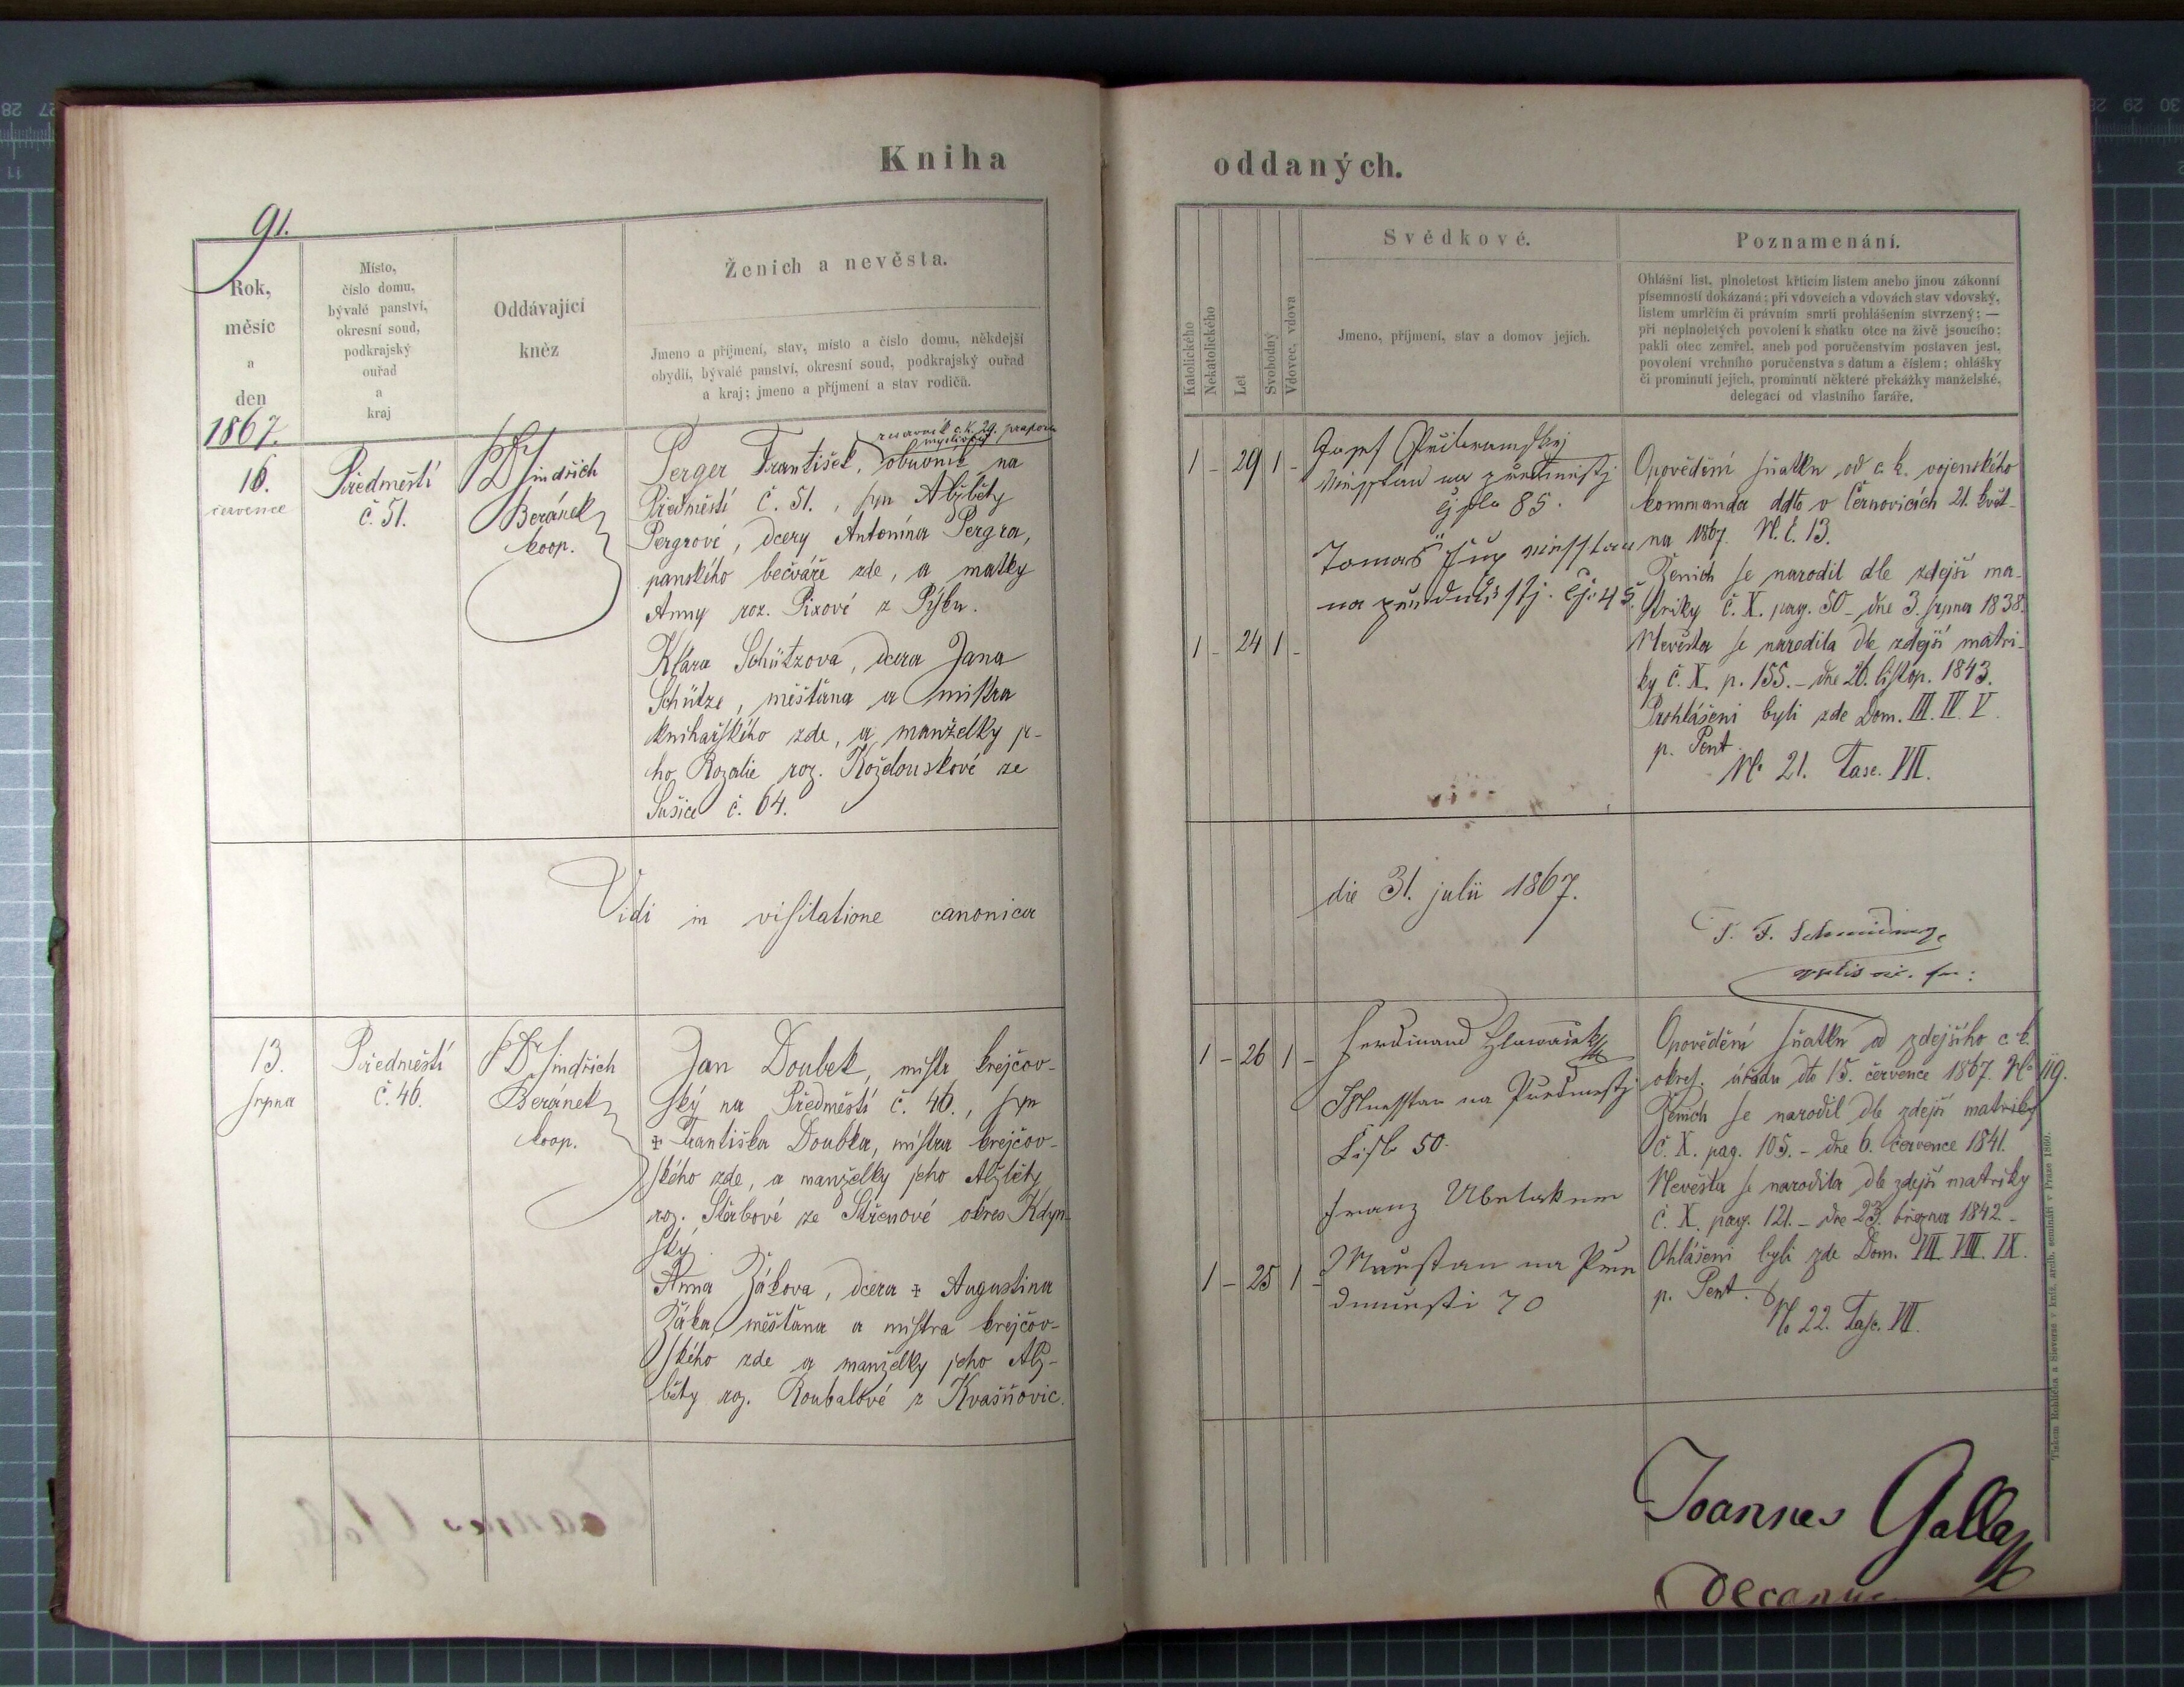 Kniha
oddaných.
91.
Rok,
měsíc
a
den
Místo,
číslo domu,
bývalé panství,
okresní soud,
podkrajský
ouřad
a
kraj
Oddávající
kněz
Ženich a nevěsta.
Jmeno a příjmení, stav, místo a číslo domu, někdejší
obydlí, bývalé panství, okresní soud, podkrajský ouřad
a kraj; jmeno a příjmení a stav rodičů.
Katolického
Nekatolického
Let
Svobodný
Vdovec, vdova
Svědkové.
Jmeno, příjmení, stav a domov jejich.
Poznamenání.
Ohlášní list, plnoletost křticím listem anebo jinou zákonní
písemností dokázaná; při vdovcích a vdovách stav vdovský,
listem umrlčím či právním smrti prohlášením stvrzený; —
při neplnoletých povolení k sňatku otce na živě jsoucího;
pakli otec zemřel, aneb pod poručenstvím postaven jest,
povolení vrchního poručenstva s datum a číslem; ohlášky
či prominutí jejich, prominutí některé překážky manželské,
delegací od vlastního faráře.
1867.
16.
července
Předměstí
č. 51.
Jindřich
Beránek
koop.
c. k. 29. praporu
Perger František, obuvník na
Předměstí č. 51., syn Alžběty
Pergrové, dcery Antonína Pergra,
panského bečváře zde, a matky
Anny roz. Pixové z Písku.
Klára Schützova, dcera Jana
Schütze, měšťana a mistra
knihařského zde, a manželky je-
ho Rozalie roz. Koždouskové ze
Sušice č. 64.
1 - 29 1 -
1 - 24 1 -
Josef
na
85.
Tomaš
na 45.
Opovědění sňatku od c. k. vojenského
kommanda ddto v Černovicích 21. květ-
na 1867. N. E. 13.
Ženich se narodil dle zdejší ma-
triky č. X. pag. 50 - dne 3. srpna 1838.
Nevěsta se narodila dle zdejší matri-
ky č. X. p. 155. - dne 26. listop. 1843.
Prohlášeni byli zde Dom. III. IV. V.
p. Pent.
No 21. Fasc. VII.
Vidi in visitatione canonica
die 31. julii 1867.
13.
srpna
Předměstí
č. 46.
Jindřich
Beránek
koop.
Jan Doubek, mistr krejčov-
ský na Předměstí č. 46., syn
+ Františka Doubka, mistra krejčov-
ského zde, a manželky jeho Alžběty
roz. Štěrbové ze Střenové okres Kdyn-
ský.
Anna Žáková, dcera + Augustina
Žáka, měšťana a mistra krejčov-
ského zde a manželky jeho Alž-
běty roz. Roubalové z Kvašňovic.
1 - 26 1 -
1 - 25 1 -
Ferdinand
na Předměstj
Čislo 50.
Franz
na
70
Opovědění sňatku od zdejšího c. k.
okres. úřadu dto 15. července 1867. No 119.
Ženich se narodil dle zdejší matriky
č. X. pag. 105. - dne 6. července 1841.
Nevěsta se narodila dle zdejší matriky
č. X. pag. 121. - dne 23. března 1842 -
Ohlášeni byli zde Dom. VII. VIII. IX.
p. Pent.
No 22. Fasc. VII.
Joannes Galla
Tiskem Rohlíčka a Sieverse v kníž. arcib. semináři v Praze 1860.